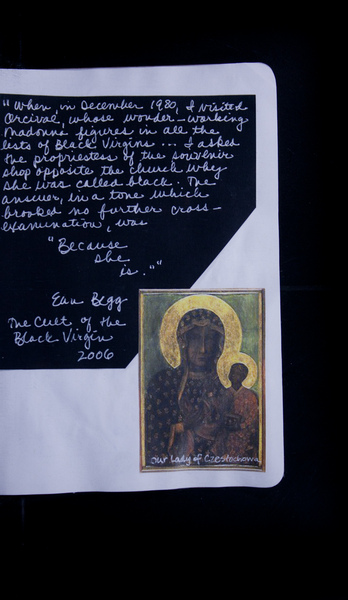 "When, in December 1980, I visited
Orcival, whose wonder-working
Madonna figures in all the
lists of Black Virgins ... I asked
the propriestess of the souvenir
shop opposite the church why
she was called black. The
answer, in a tone which
brooked no further cross-
examination, was
"Because
she
is.""
Ean Begg
The Cult of the
Black Virgin
2006
Our Lady of Czestochowa